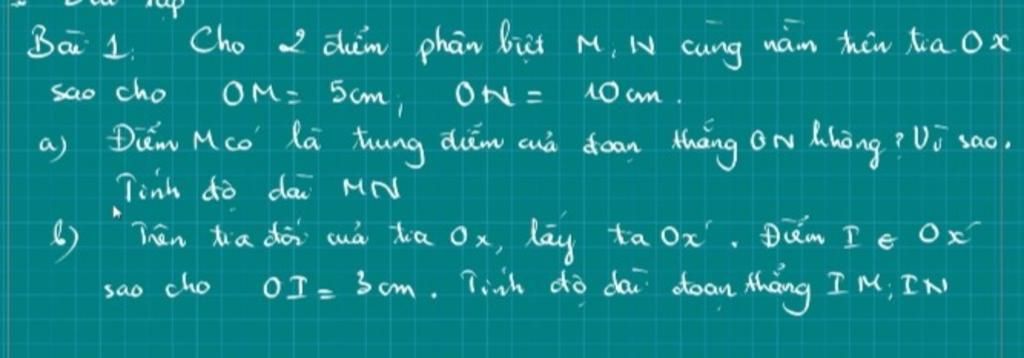 Bài 1. Cho 2 điểm phân biệt M, N cùng nằm trên tia Ox
sao cho OM = 5cm; ON = 10cm.
a) Điểm M có là trung điểm của đoạn thẳng ON không? Vì sao.
Tính độ dài MN
b) Trên tia đối của tia Ox, lấy ta Ox'. Điểm I ∈ Ox'
sao cho OI = 3cm. Tính độ dài đoạn thẳng IM; IN